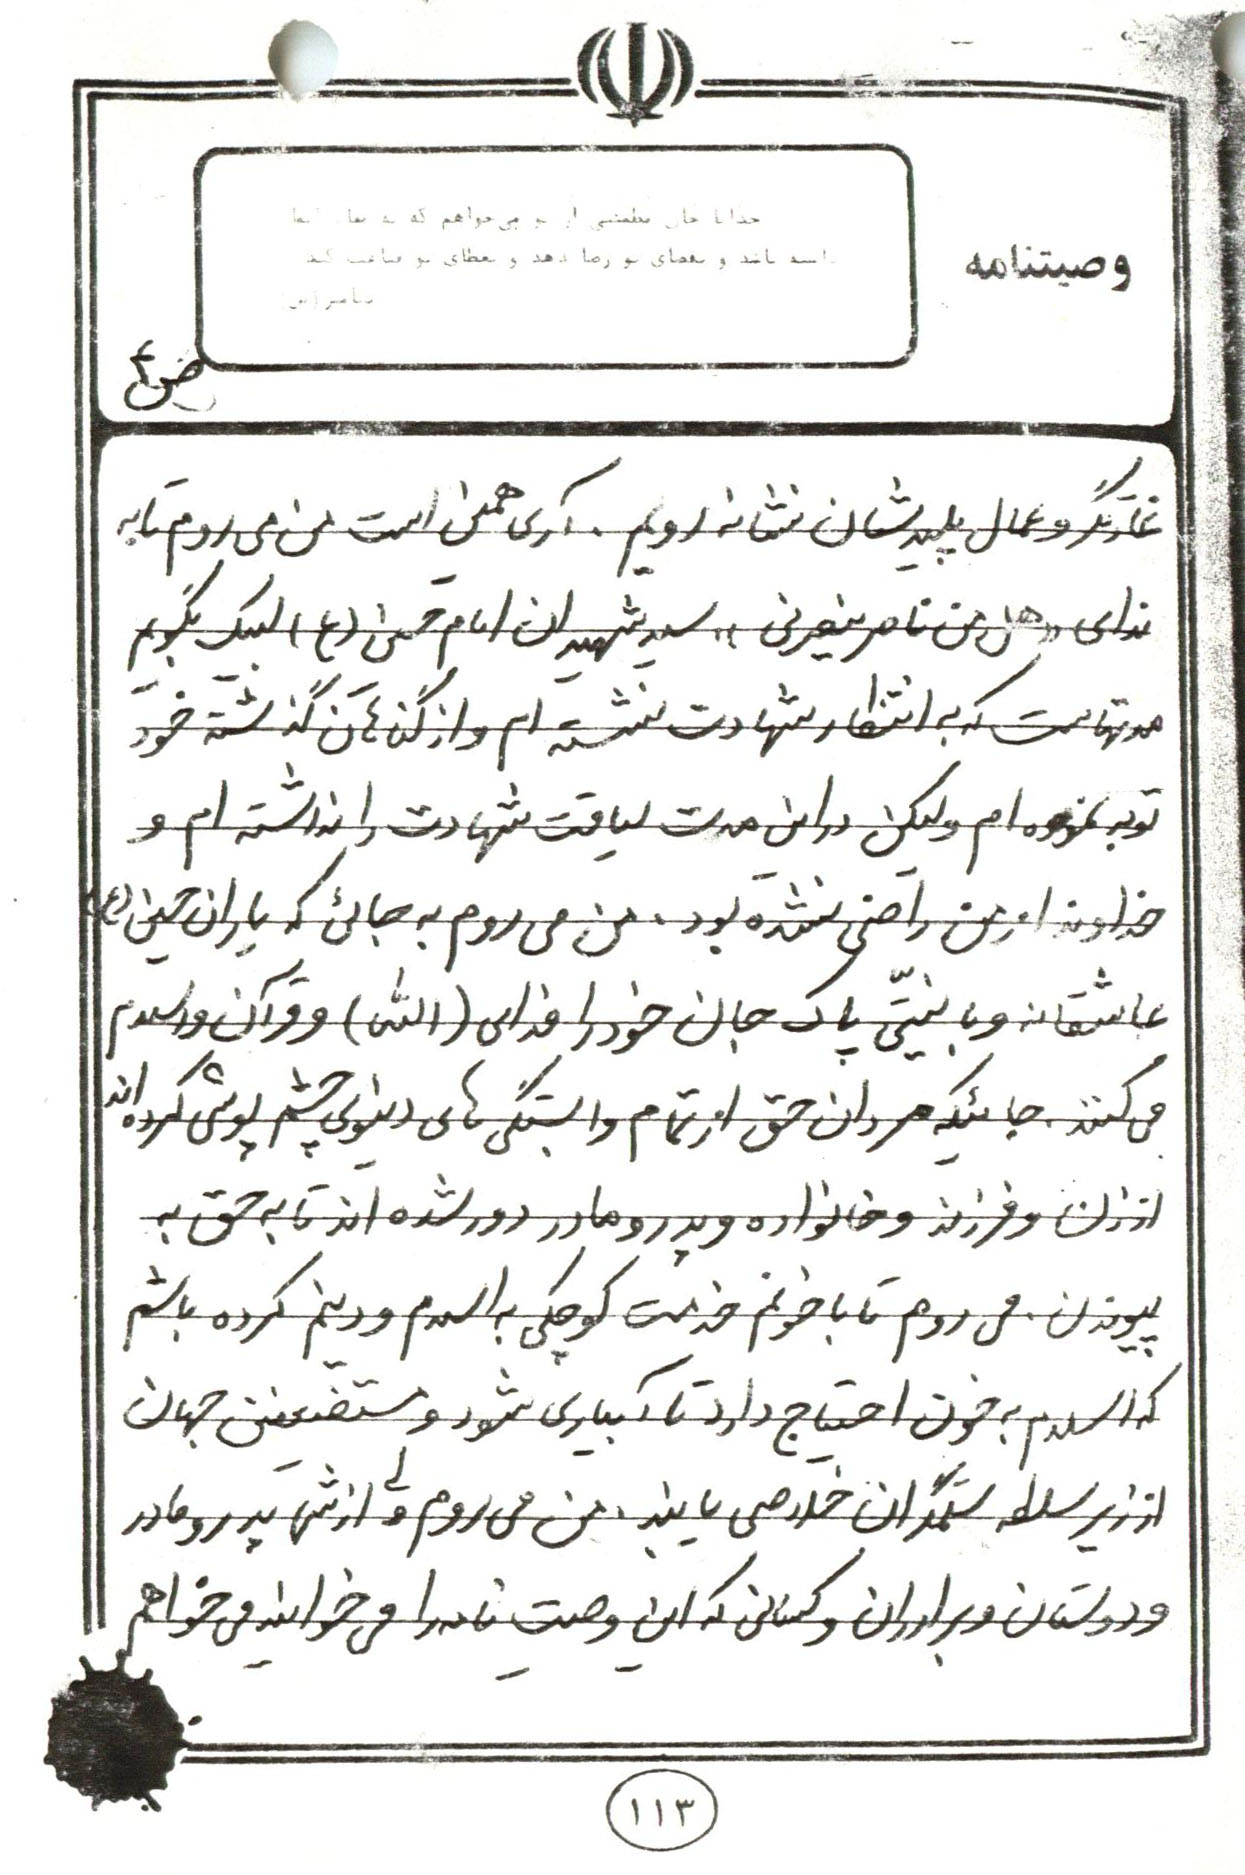 خدایا جان مطمئنی از تو می‌خواهم که به لقاء
باشد و بقضای تو رضا دهد و بعطای تو قناعت کند
وصیتنامه
ص ۴
غارتگر و عمال پلیدشان نشانه رویم . آری همین است من می روم تا به
ندای «هل من ناصر ینصرنی» سید شهیدان امام حسین (ع) لبیک بگویم
مدتهاست که به انتظار شهادت نشسته ام و از گناهان گذشته خود
توبه نموده ام ولیکن در این مدت لیاقت شهادت را نداشته ام و
خداوند از من راضی نشده بود . من می روم به جائی که یاران حسین (ع)
عاشقانه و با نیتّی پاک جان خود را فدای (الله) و قرآن و اسلام
می کنند . جائیکه مردان حق از تمام وابستگی های دنیوی چشم پوشی کرده اند
از زن و فرزند و خانواده و پدر و مادر دور شده اند تا به حق به
پیوندن . می روم تا با خونم خدمت کوچکی به اسلام و دینم کرده باشم
که اسلام به خون احتیاج دارد تا آبیاری شود و مستضعفین جهان
از زیر سلطه ستمگران خلاصی یابند . من می روم ولی از شما پدر و مادر
و دوستان و برادران و کسانی که این وصیت نامه را می خوانند می خواهم
۱۱۳